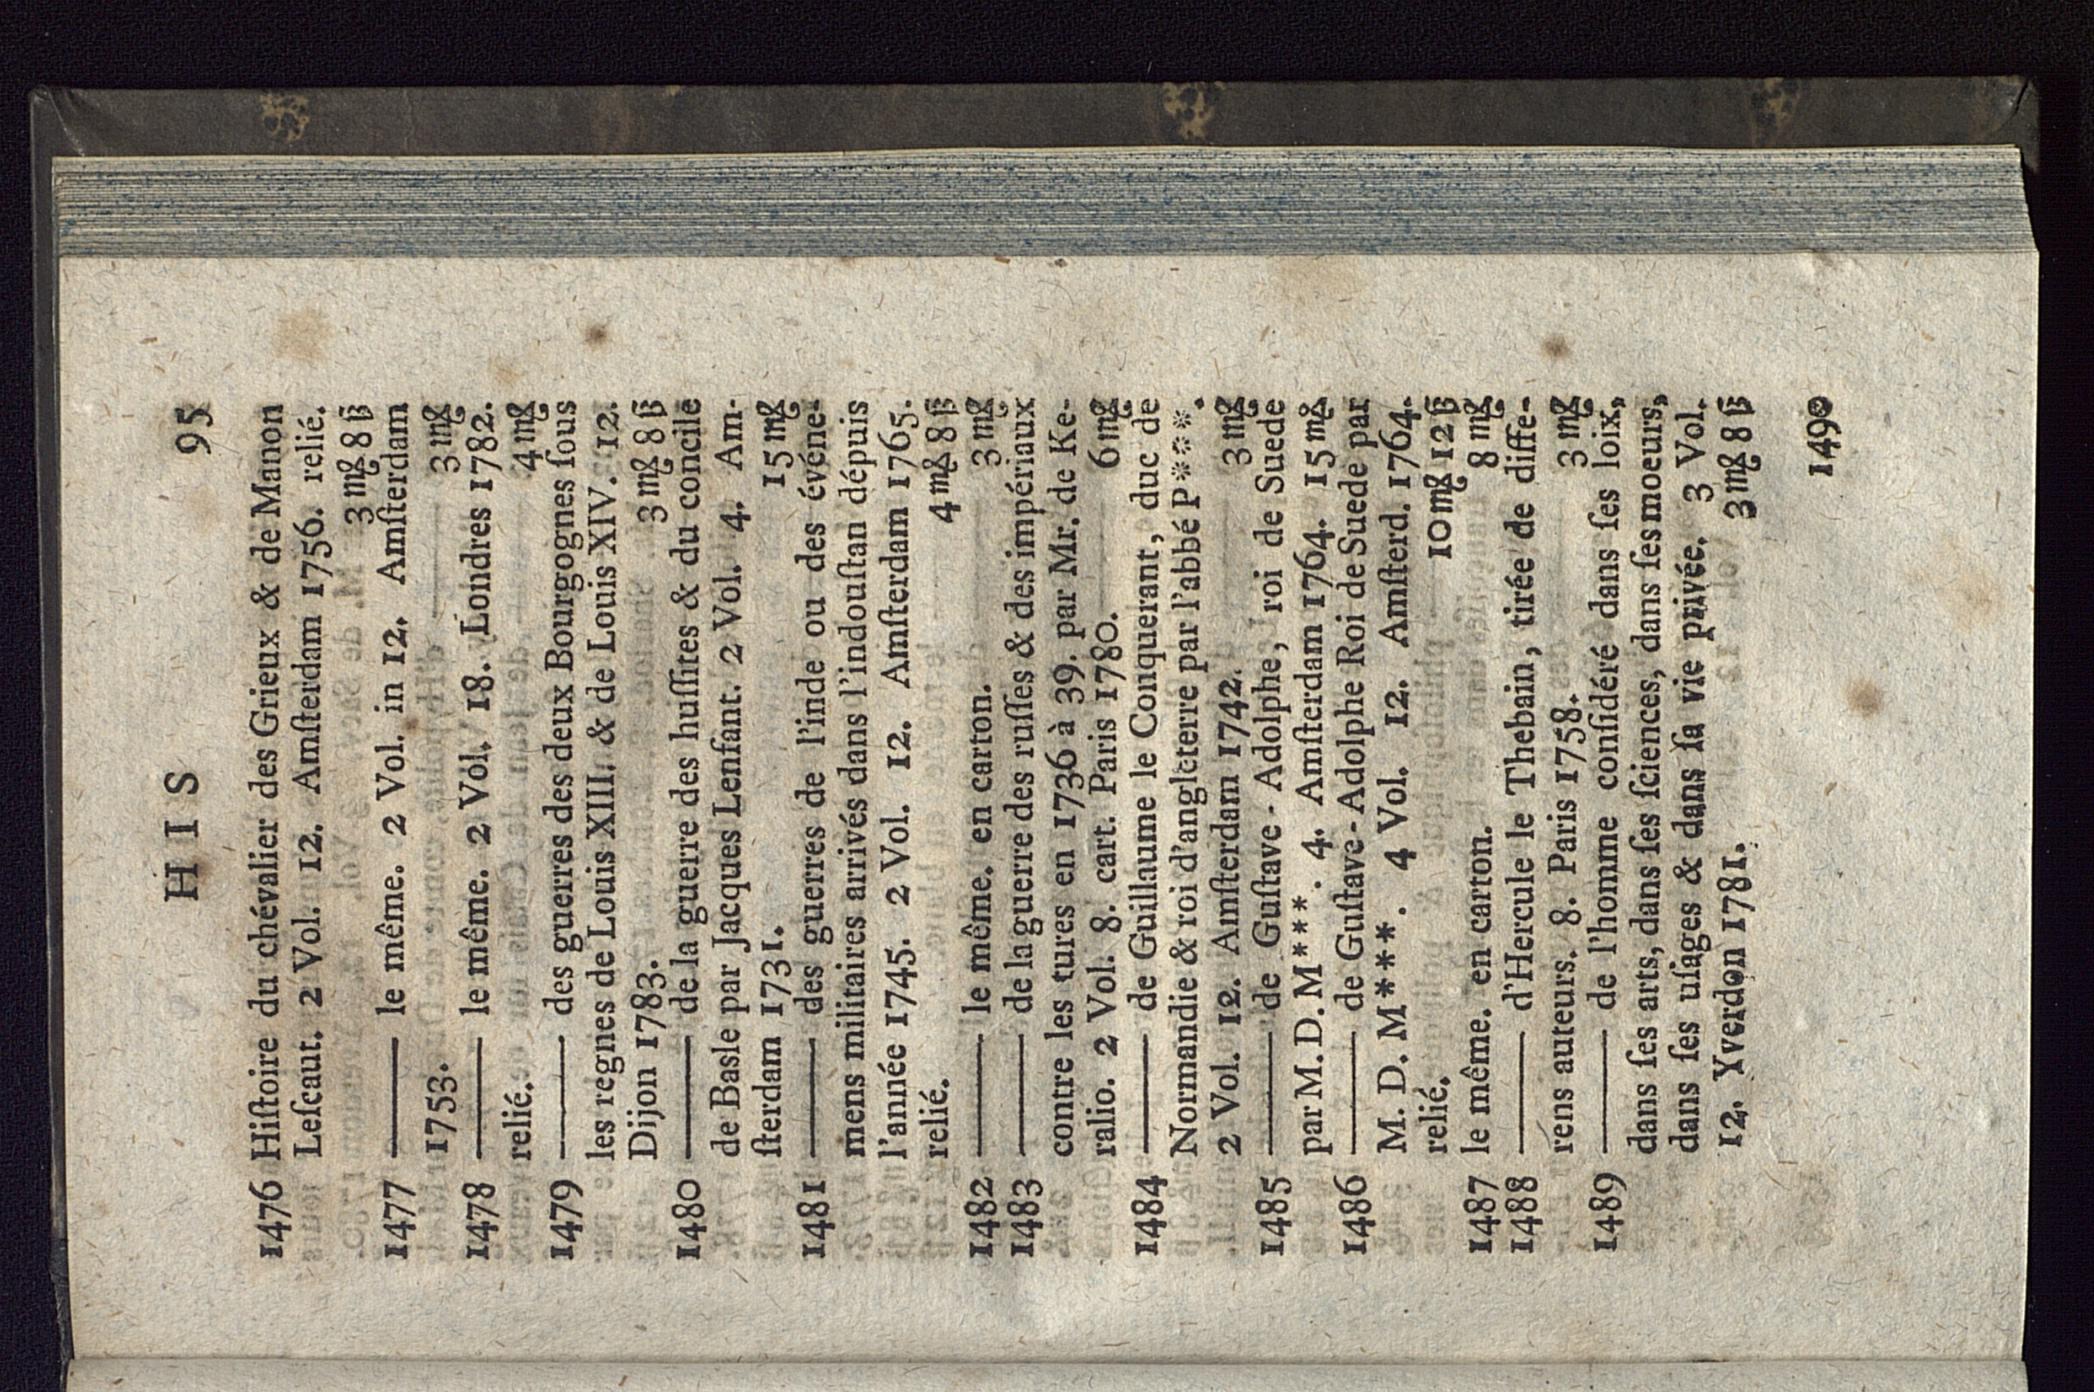 HIS 95
1476 Hiſtoire du chévalier des Grieux & de Manon
Leſcaut. 2 Vol. 12. Amſterdam 1756. relié.
3 m₰ 8 ß
1477 —— le même. 2 Vol. in 12. Amſterdam
1753. 3 m₰
1478 —— le même. 2 Vol. 18. Londres 1782.
relié. 4 m₰
1479 —— des guerres des deux Bourgognes ſous
les regnes de Louis XIII. & de Louis XIV. 12.
Dijon 1783. 3 m₰ 8 ß
1480 —— de la guerre des huſſites & du concile
de Basle par Jacques Lenfant. 2 Vol. 4. Am-
ſterdam 1731. 15 m₰
1481 —— des guerres de l'inde ou des événe-
mens militaires arrivés dans l'indouſtan dépuis
l'année 1745. 2 Vol. 12. Amſterdam 1765.
relié. 4 m₰ 8 ß
1482 —— le même. en carton. 3 m₰
1483 —— de la guerre des ruſſes & des impériaux
contre les tures en 1736 à 39. par Mr. de Ke-
ralio. 2 Vol. 8. cart. Paris 1780. 6 m₰
1484 —— de Guillaume le Conquerant, duc de
Normandie & roi d'angleterre par l'abbé P***.
2 Vol. 12. Amſterdam 1742. 3 m₰
1485 —— de Guſtave-Adolphe, roi de Suede
par M. D. M***. 4. Amſterdam 1764. 15 m₰
1486 —— de Guſtave-Adolphe Roi de Suede par
M. D. M***. 4 Vol. 12. Amſterd. 1764.
relié. 10 m₰ 12 ß
1487 le même. en carton. 8 m₰
1488 —— d'Hercule le Thebain, tirée de diffe-
rens auteurs. 8. Paris 1758. 3 m₰
1489 —— de l'homme conſidéré dans ſes loix,
dans ſes arts, dans ſes ſciences, dans ſes moeurs,
dans ſes uſages & dans ſa vie privée. 3 Vol.
12. Yverdon 1781. 3 m₰ 8 ß
1490